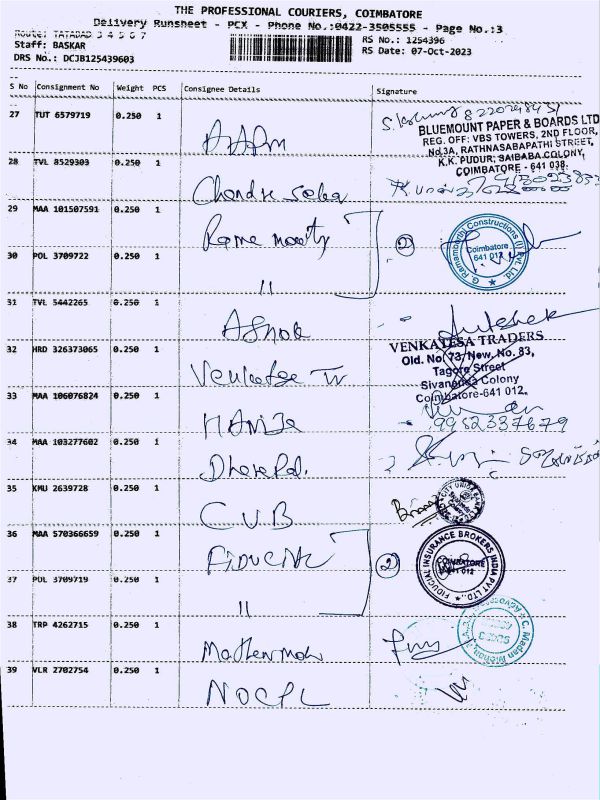 THE PROFESSIONAL COURIERS, COIMBATORE
Delivery Runsheet - PCX - Phone No.:0422-3505555 - Page No.:3
Route: TATABAD 3 4 5 6 7
RS No.: 1254396
Staff: BASKAR
RS Date: 07-Oct-2023
DRS No.: DCJB125439603
S No Consignment No Weight PCS Consignee Details Signature
27 TUT 6579719 0.250 1
BLUEMOUNT PAPER & BOARDS LTD
REG. OFF: VBS TOWERS, 2ND FLOOR,
No.3A, RATHNASABAPATHI STREET,
K.K. PUDUR, SAIBABA COLONY,
COIMBATORE - 641 038.
28 TVL 8529303 0.250 1
29 MAA 101507591 0.250 1
Rama moorty
2
G. Ramamoorthi Constructions (I) Pvt. Ltd
Coimbatore
641 012
30 POL 3709722 0.250 1
"
31 TVL 5442265 0.250 1
Ashok
32 HRD 326373065 0.250 1
VENKATESA TRADERS
Old. No. 73, New. No. 83,
Tagore Street
Sivananda Colony
Coimbatore-641 012.
33 MAA 106076824 0.250 1
9952337679
34 MAA 103277602 0.250 1
35 KMU 2639728 0.250 1
C.U.B
36 MAA 570366659 0.250 1
2
FIDUCIAL INSURANCE BROKERS INDIA PVT LTD.
COIMBATORE
641 012
37 POL 3709719 0.250 1
"
38 TRP 4262715 0.250 1
C. Madan Mohan
39 VLR 2782754 0.250 1
NOCPL